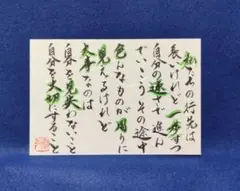 私たちの行先は
長いけれど一歩ずつ
自分の速さで進ん
でいこうその途中
色んなものが周りに
見えるけれど
大事なのは
自分を見失わないこと
自分を大切にすること